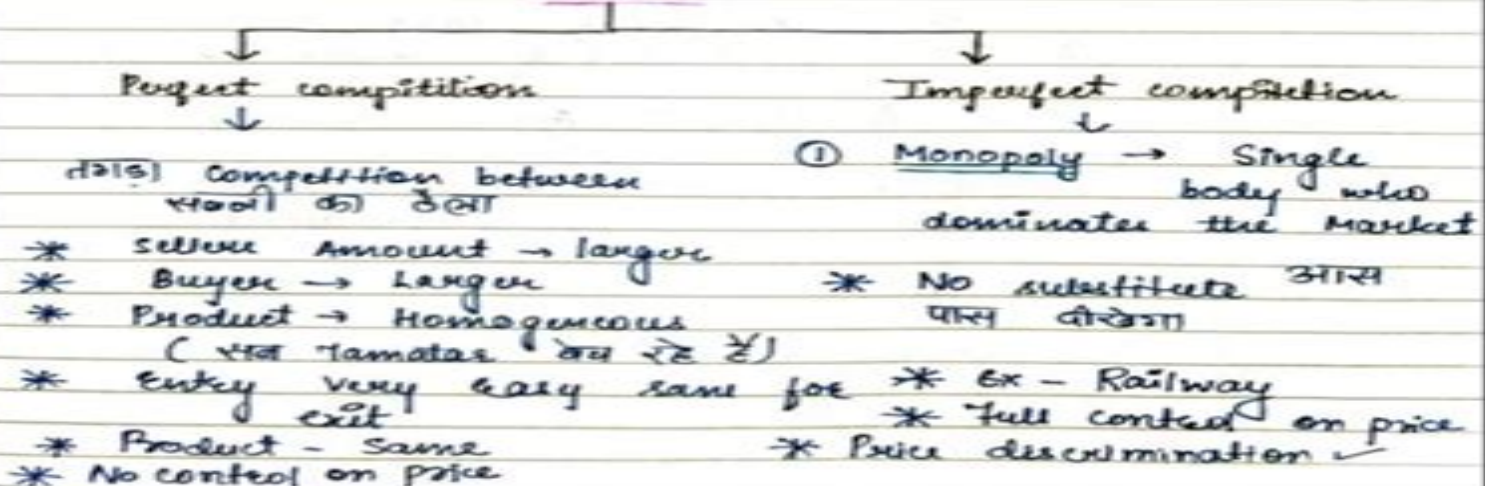 Perfect compitition
तगड़ा Competition between
सब्जी का ठेला
* Sellers Amount → larger
* Buyer → Larger
* Product → Homogeneous
( सब Tamatar बेच रहे हैं)
* Entry very easy same for
exit
* Product - Same
* No control on price
Imperfect compitition
① Monopoly → Single
body who
dominates the Market
* No substitute आस
पास दीखेगा
* Ex - Railway
* Full control on price
* Price discrimination ✓